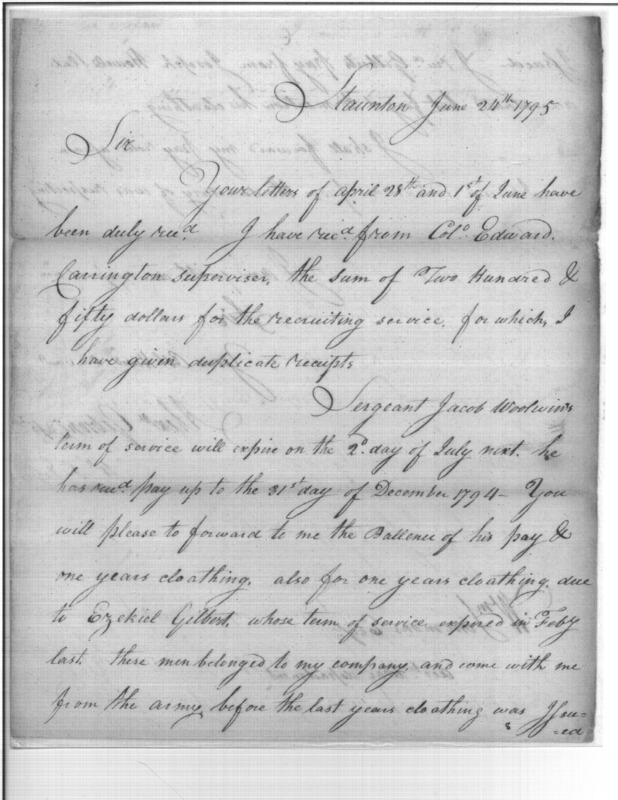 Staunton June 24th 1795
Sir
Your letters of april 28th and 1st of June have
been duly recd. I have recd from Colo. Edward.
Carrington supervisor, the sum of Two Hundred &
fifty dollars for the recruiting service, for which, I
have given duplicate receipts
Sergeant Jacob Woolwin's
term of service will expire on the 2d. day of July next. he
has recd. pay up to the 31st day of December 1794 - You
will please to forward to me the Ballence of his pay &
one years cloathing. also for one years cloathing. due
to Ezekiel Gilbert, whose term of service expired in Feby
last. these men belonged to my company, and come with me
from the army, before the last years cloathing was Issu-
-ed